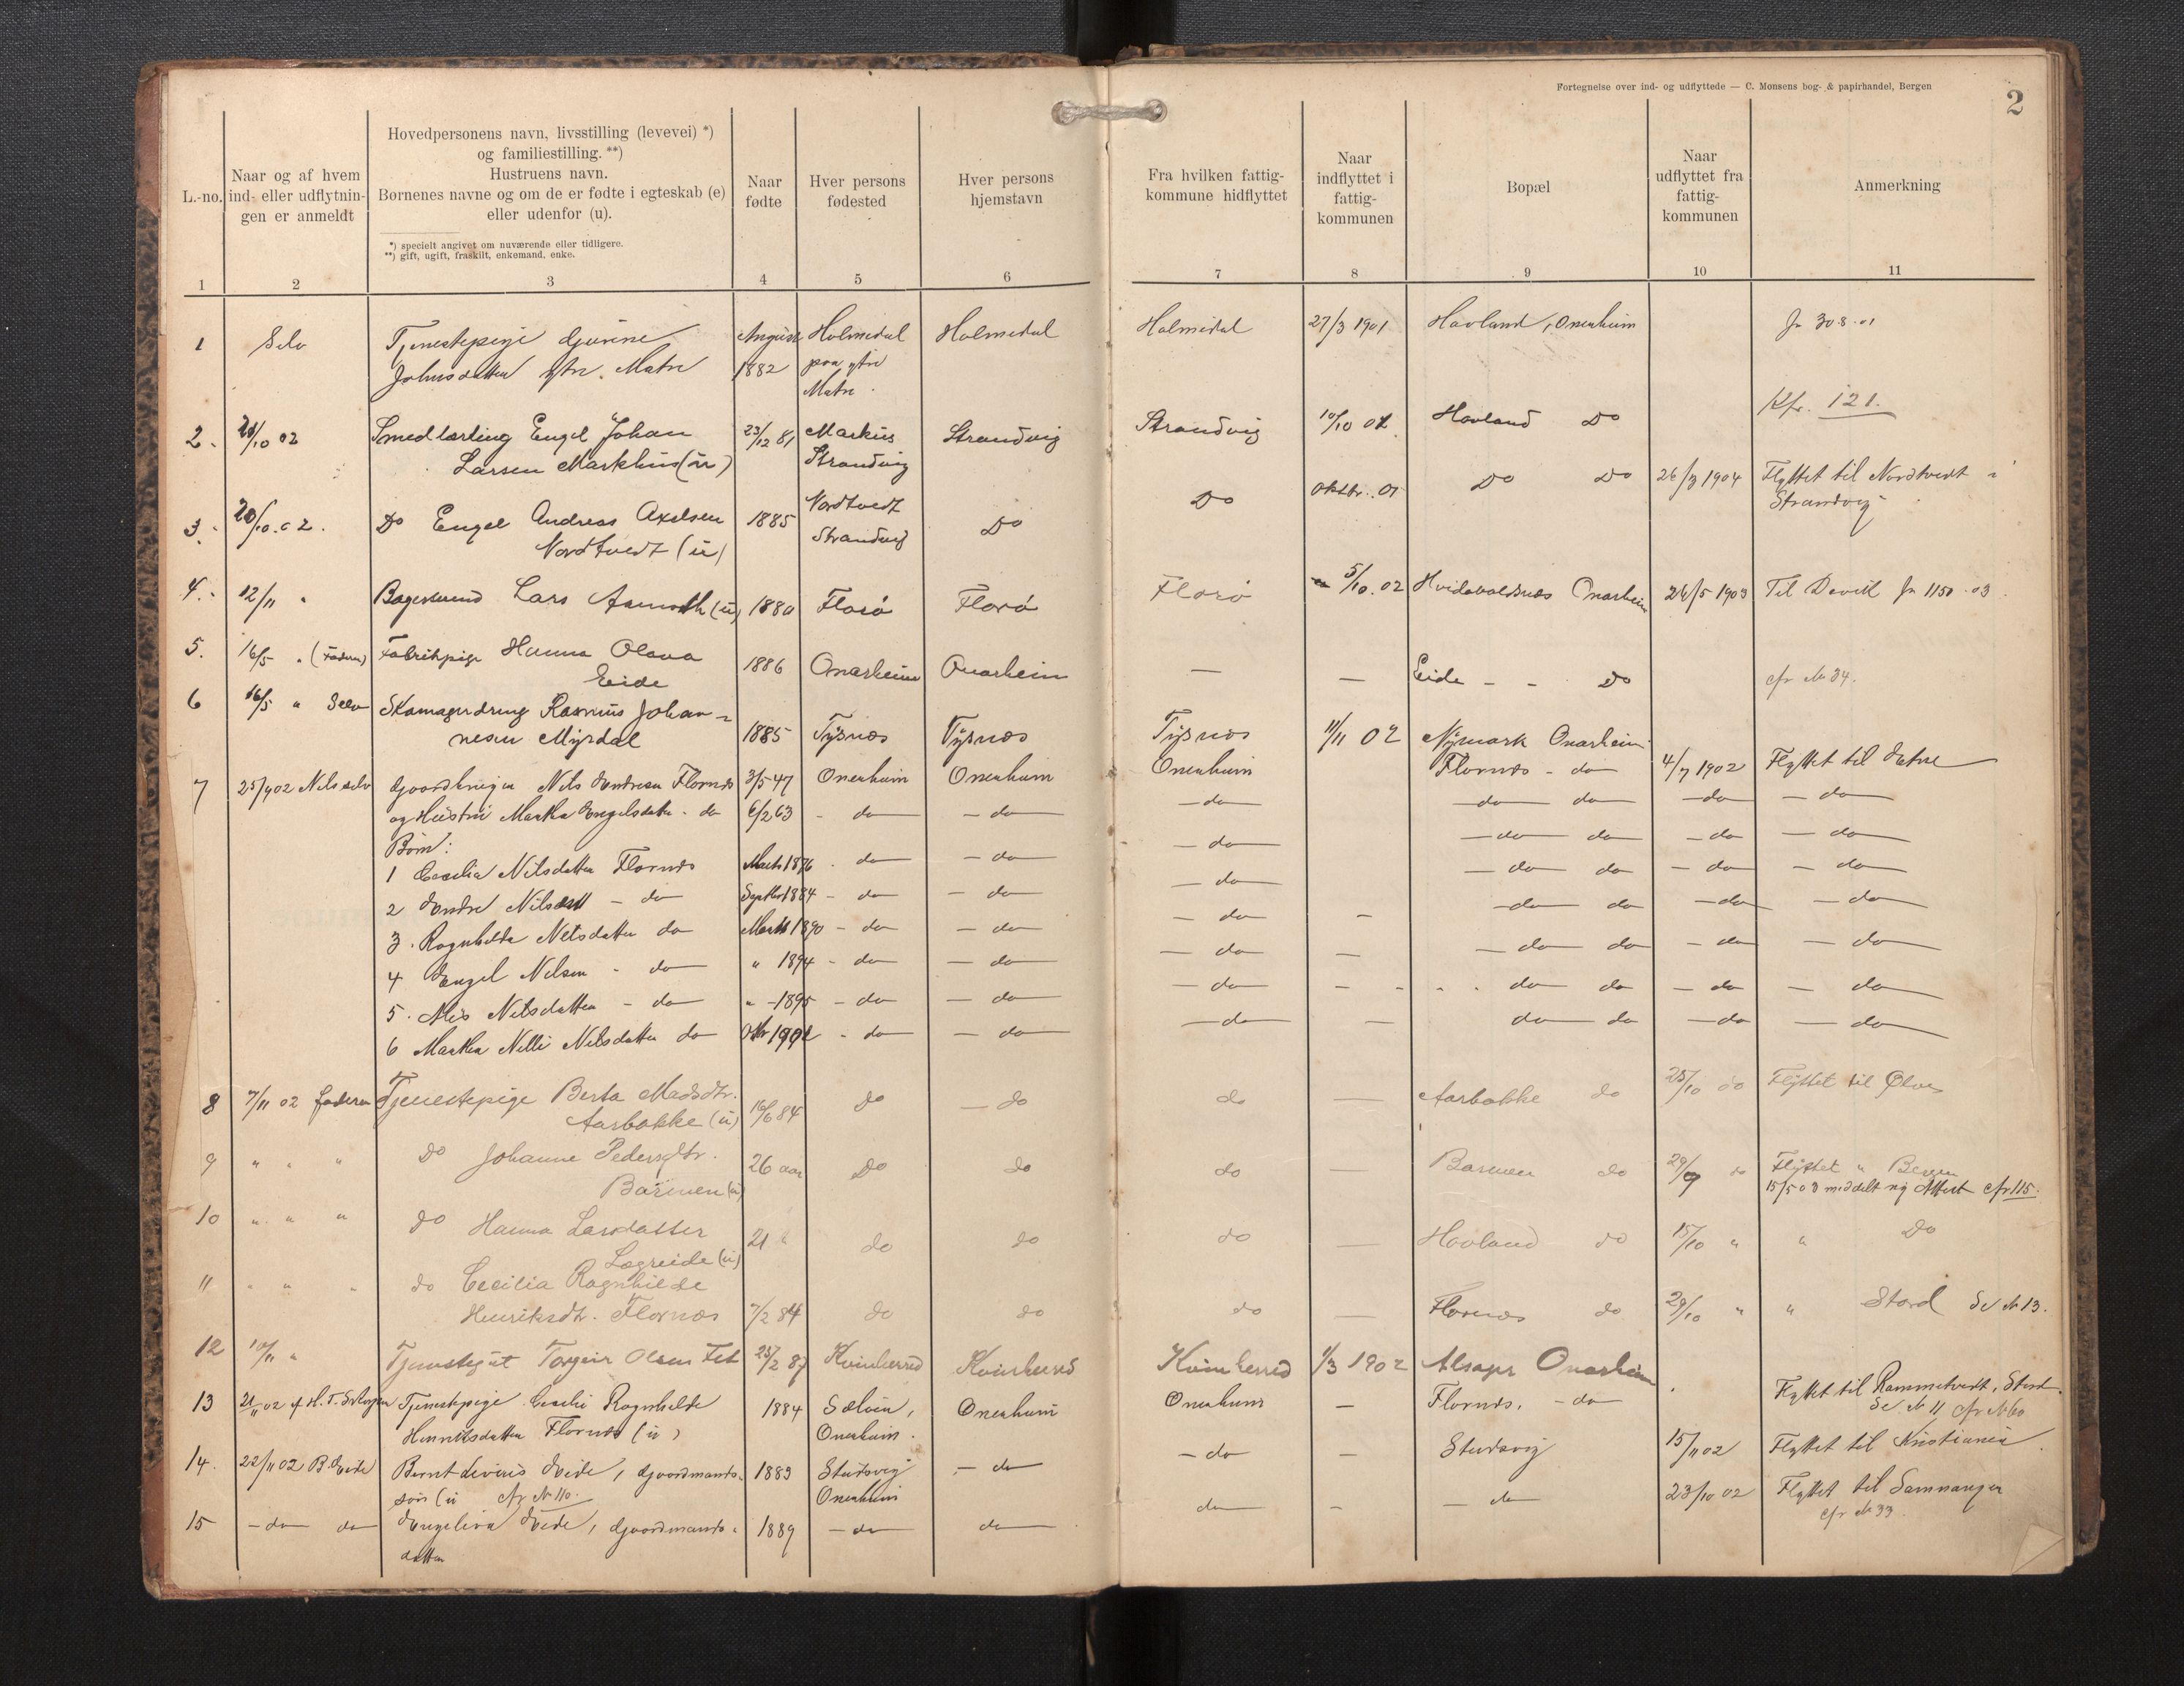 Fortegnelse over ind- og udflyttede — C. Monsens bog- & papirhandel, Bergen
2
L.-no.
Naar og af hvem
ind- eller udflytnin-
gen er anmeldt
Hovedpersonens navn, livsstilling (levevei) *)
og familiestilling. **)
Hustruens navn.
Børnenes navne og om de er fødte i egteskab (e)
eller udenfor (u).
*) specielt angivet om nuværende eller tidligere.
**) gift, ugift, fraskilt, enkemand, enke.
Naar
fødte
Hver persons
fødested
Hver persons
hjemstavn
Fra hvilken fattig-
kommune hidflyttet
Naar
indflyttet i
fattig-
kommunen
Bopæl
Naar
udflyttet fra
fattig-
kommunen
Anmerkning
1 2 3 4 5 6 7 8 9 10 11
1 Selv Tjenestepige Gjurine August Holmedal Holmedal Holmedal 27/3 1901 Havland, Onarheim Jr 308.01
Johnsdatter ytre. Matre 1882 paa ytre
Matre
Kfr. 121.
2. 20/10 02 Smedlærling Engel Johan 23/12 81 Markus Strandvig Strandvig 10/10 01 Havland Do
Larsen Markhus (u) Strandvig
3. 20/10.02. Do Engel Andreas Axelsen 1885 Nordtvedt Do Do Oktbr. 01 Do Do 26/3 1904 Flyttet til Nordtvedt i
Nordtvedt (u) Strandvig Strandvig
4. 12/11 " Bagersvend Lars (u) 1880 Florø Florø Florø 5/10.02 Hvideboldsnes Onarheim 24/5 1903 Til Davik Jr 1150.03
5. 16/5 " (Faderen) Fabrikpige Hanna Olava 1886 Onarheim Onarheim — — Eide - - Do cfr No 34.
Eide
6 16/5 " Selv Rasmus Johan-
nesen Myrdal 1885 Tysnes Tysnes Tysnes 11/11 02 Nymark Onarheim
7 25/9 02 Nils selv Gjoordbruger Nils Endresen Flornes 3/5 47 Onarheim Onarheim Onarheim Flornes - do 4/7 1902 Flyttet til Etne
og Hustru Martha Engelsdatter - do 6/2 63 - do — do — do — do do — do — do
Børn:
1 Cecilia Nilsdatter Flornes Marts 1876 - do — do — do — do do — do — do
2 Endre Nilsen — do Septbr 1884 - do — do — do — do do — do — do
3. Ragnhilda Nilsdatter do Marts 1890 - do — do — do — — do do — do — do
4 Engel Nilsen - do " 1894 - do — do — do — — do do — do — do
5. Nilsdatter - do " - 1895 - do — do — do - - - - do do — do — do
6 Martha Nilli Nilsdatter do Oktbr 1901 - do — do — do — do do — do — do
8 7/11 02 faderen Tjenestepige Berta Madsdtr. 16/6 84 Do — do do — Aarbakke do 25/10 do Flyttet til Ølve
Aarbakke (u)
9 " " " Do Johanne Pedersdtr. 26 aar Do do do — Barmen do 29/9 do Flyttet " Bergen
Barmen (u) 15/5 03 meddelt ny Attest cfr 115.
10 " " " do Hanna Larsdatter 21 " do do do — Havland do 15/10 " " Do
Løgreide (u)
11 " " " do Cecilia Ragnhilde
Henriksdtr. Flornes 7/2 84 do do do — Flornes do 29/10 " " Stord Se No 13.
12 10/11 " Tjenestegut Torgeir Olsen Fet 25/2 87 Kvinherred Kvinherred Kvinherred 1/3 1902 Onarheim
13 21/11 02 af H. T. Tjenestepige Cecilie Ragnhilde 1884 Onarheim Onarheim — Flornes. - do Flyttet til Rammetvedt, Stord.
Henriksdatter Flornes (u) Onarheim. Se No 11 cfr No 60
14. 22/11 02 B. Eide Bernt Severin Eide, Gjoordmands- 1883 Studsvig — do — do — Studsvig 15/11 02 Flyttet til Kristiania
søn (u cfr No 110. Onarheim
15 — do do Engelina Eide, Gjoordmands- 1889 — do do do — — do 23/10 02 Flyttet til Samnanger
datter cfr No 33.